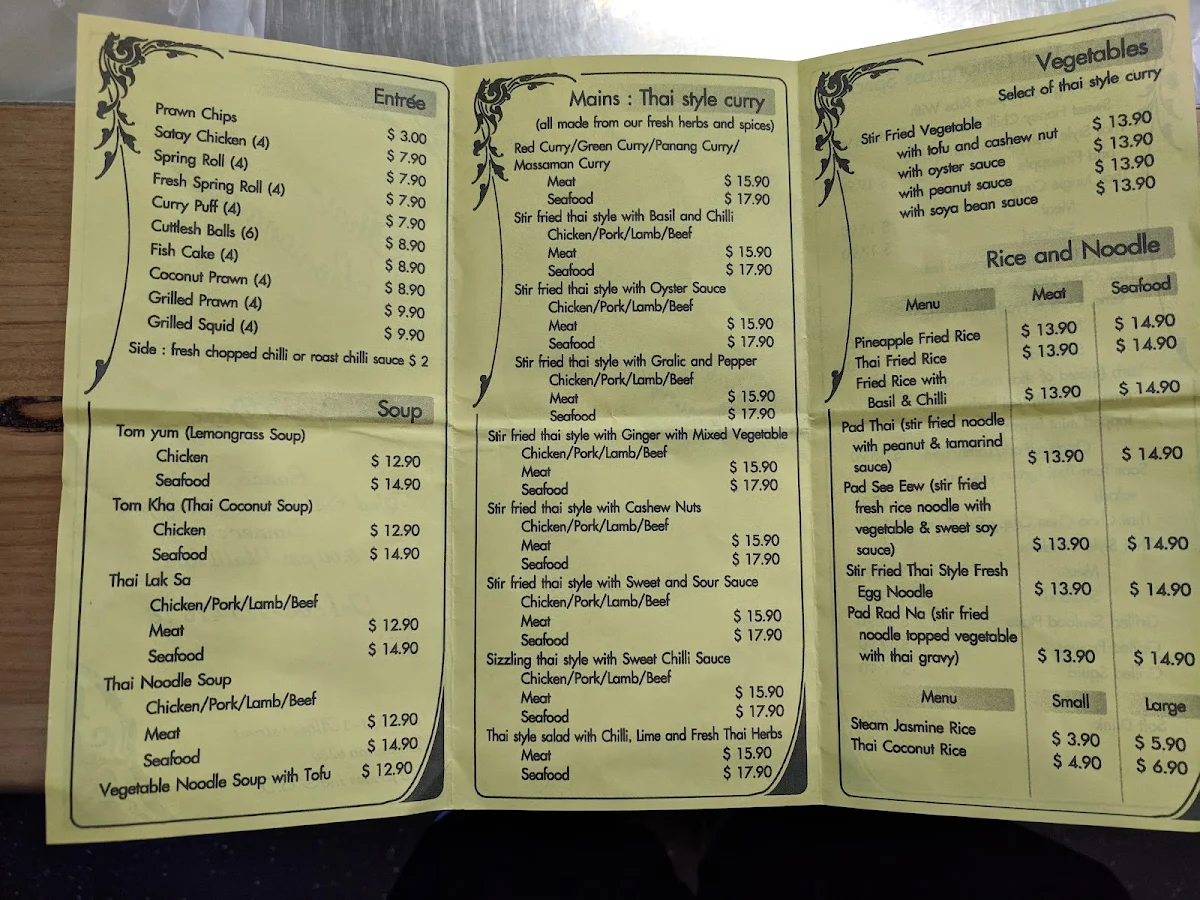 Entrée
Prawn Chips $ 3.00
Satay Chicken (4) $ 7.90
Spring Roll (4) $ 7.90
Fresh Spring Roll (4) $ 7.90
Curry Puff (4) $ 7.90
Cuttlesh Balls (6) $ 8.90
Fish Cake (4) $ 8.90
Coconut Prawn (4) $ 8.90
Grilled Prawn (4) $ 9.90
Grilled Squid (4) $ 9.90
Side : fresh chopped chilli or roast chilli sauce $ 2
Soup
Tom yum (Lemongrass Soup)
Chicken $ 12.90
Seafood $ 14.90
Tom Kha (Thai Coconut Soup)
Chicken $ 12.90
Seafood $ 14.90
Thai Lak Sa
Chicken/Pork/Lamb/Beef
Meat $ 12.90
Seafood $ 14.90
Thai Noodle Soup
Chicken/Pork/Lamb/Beef
Meat $ 12.90
Seafood $ 14.90
Vegetable Noodle Soup with Tofu $ 12.90
Mains : Thai style curry
(all made from our fresh herbs and spices)
Red Curry/Green Curry/Panang Curry/
Massaman Curry
Meat $ 15.90
Seafood $ 17.90
Stir fried thai style with Basil and Chilli
Chicken/Pork/Lamb/Beef
Meat $ 15.90
Seafood $ 17.90
Stir fried thai style with Oyster Sauce
Chicken/Pork/Lamb/Beef
Meat $ 15.90
Seafood $ 17.90
Stir fried thai style with Gralic and Pepper
Chicken/Pork/Lamb/Beef
Meat $ 15.90
Seafood $ 17.90
Stir fried thai style with Ginger with Mixed Vegetable
Chicken/Pork/Lamb/Beef
Meat $ 15.90
Seafood $ 17.90
Stir fried thai style with Cashew Nuts
Chicken/Pork/Lamb/Beef
Meat $ 15.90
Seafood $ 17.90
Stir fried thai style with Sweet and Sour Sauce
Chicken/Pork/Lamb/Beef
Meat $ 15.90
Seafood $ 17.90
Sizzling thai style with Sweet Chilli Sauce
Chicken/Pork/Lamb/Beef
Meat $ 15.90
Seafood $ 17.90
Thai style salad with Chilli, Lime and Fresh Thai Herbs
Meat $ 15.90
Seafood $ 17.90
Vegetables
Select of thai style curry
Stir Fried Vegetable
with tofu and cashew nut $ 13.90
with oyster sauce $ 13.90
with peanut sauce $ 13.90
with soya bean sauce $ 13.90
Rice and Noodle
Menu Meat Seafood
Pineapple Fried Rice $ 13.90 $ 14.90
Thai Fried Rice $ 13.90 $ 14.90
Fried Rice with
Basil & Chilli $ 13.90 $ 14.90
Pad Thai (stir fried noodle
with peanut & tamarind $ 13.90 $ 14.90
sauce)
Pad See Eew (stir fried
fresh rice noodle with
vegetable & sweet soy
sauce) $ 13.90 $ 14.90
Stir Fried Thai Style Fresh
Egg Noodle $ 13.90 $ 14.90
Pad Rad Na (stir fried
noodle topped vegetable
with thai gravy) $ 13.90 $ 14.90
Menu Small Large
Steam Jasmine Rice $ 3.90 $ 5.90
Thai Coconut Rice $ 4.90 $ 6.90